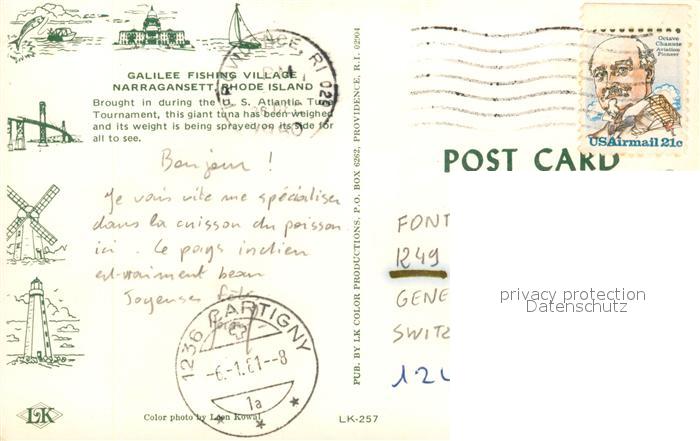 GALILEE FISHING VILLAGE
NARRAGANSETT, RHODE ISLAND
Brought in during the U. S. Atlantic Tuna
Tournament, this giant tuna has been weighed
and its weight is being sprayed on its side for
all to see.
Bonjour !
Je vais vite me spécialiser
dans la cuisson du poisson
ici. Le pays indien
est vraiment beau
Joyeuses fêtes
LK
Color photo by Leon Kowal
LK-257
PUB. BY LK COLOR PRODUCTIONS, P.O. BOX 6262, PROVIDENCE, R.I. 02904
PROVIDENCE, RI 029
1236 CARTIGNY
-6.-1.81--8
1a
Octave
Chanute
Aviation
Pioneer
USAirmail 21c
POST CARD
FONT
1249
GENE
SWITZ
12
privacy protection
Datenschutz